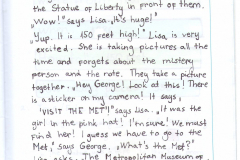 the Statue of Liberty in front of them.
„Wow!" says Lisa. „It's huge!"
„Yup. It is 150 feet high!" Lisa is very
excited. She is taking pictures all the
time and forgets about the mistery
person and the note. They take a picture
together. „Hey George! Look at this! There
is a sticker on my camera! It says,
'VISIT THE MET!' says Lisa. „It was the
girl in the pink hat! I'm sure! We must
find her! I guess we have to go to the
Met," says George. „What's the Met?"
asks. The Metropolitan Museum of